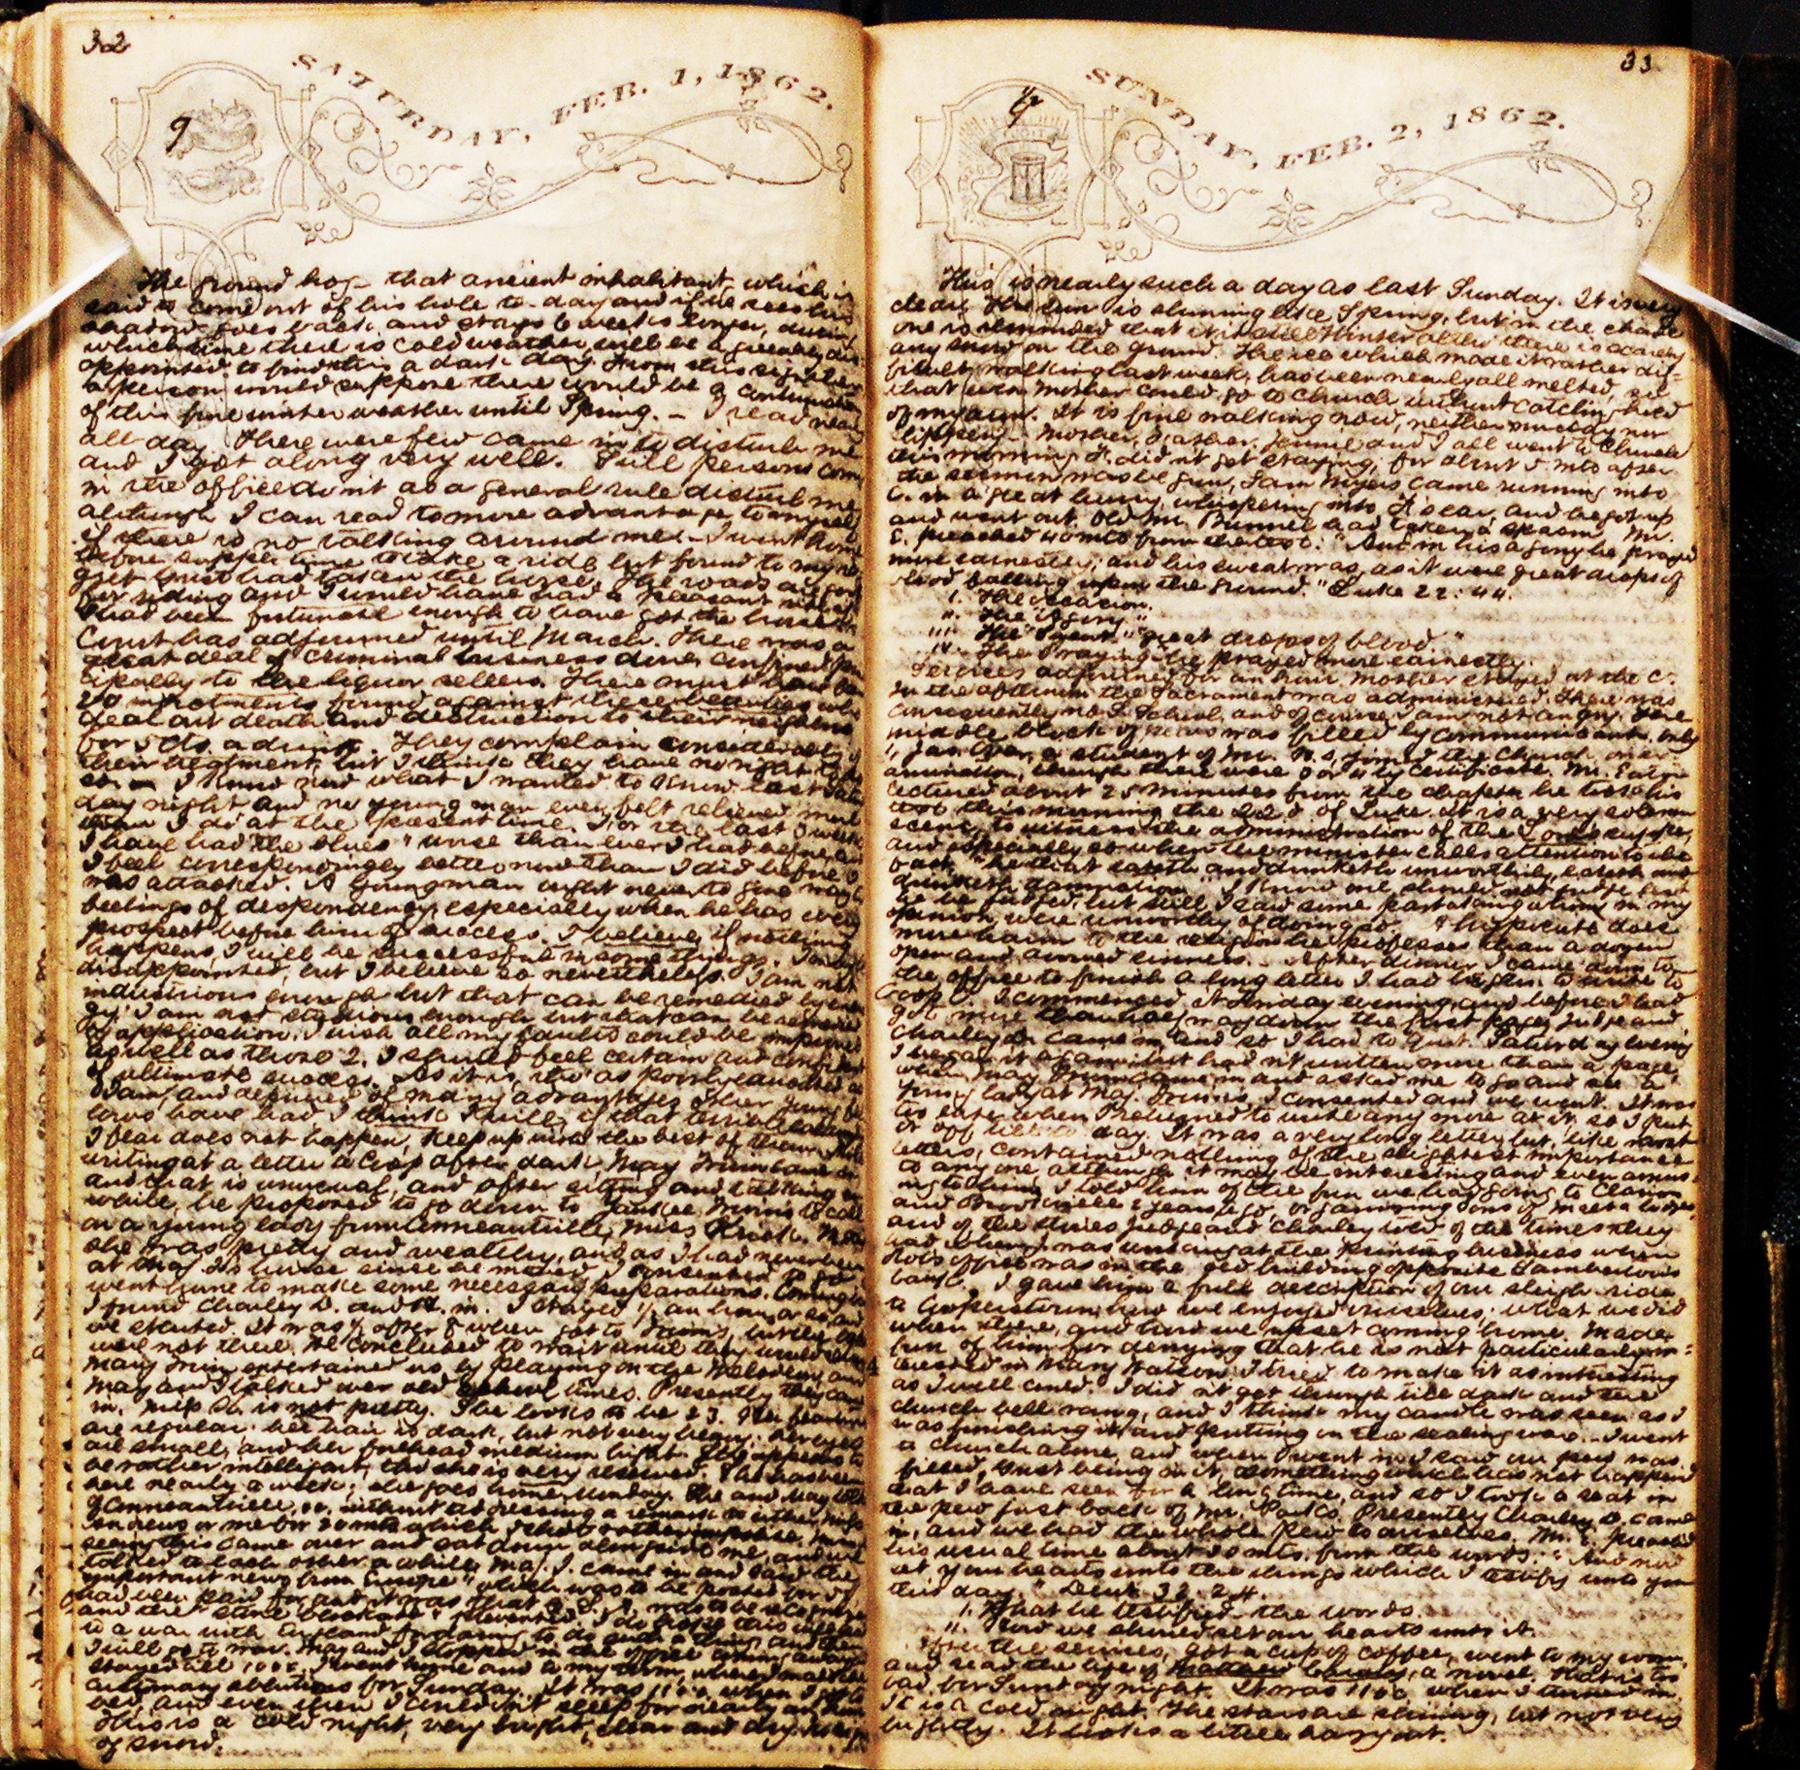 32
SATURDAY, FEB. 1, 1862.
9
The ground hog - that ancient inhabitant, which is
said to come out of his hole to-day and if he sees his
shadow goes back and stays 6 weeks longer, during
which time there is cold weather will be a greatly dis
appointed to find this a dark day. From this
a person would suppose there would be a continuation
of this fine winter weather until Spring. - I read near
all day. There were few came in to disturb me
and I got along very well. Still persons com
in the office don't as a general rule disturb me
although I can read to more advantage to myself
if there is no talking around me. - I went home
before supper time to take a ride but found to my re
gret that had taken the horse. The roads are good
for riding and I would have had a pleasant
had been fortunate enough to have got the horse.
Court has adjourned until March. There was a
great deal of criminal business done, confined prin
cipally to the liquor sellers. There must have been
20 indictments found against these beauties who
deal out death and destruction to their neighbors
for 5 cts. a drink. They complain considerably
their treatment, but I think they have no right to
I know now what I wanted to know last
day night and no young man ever felt relieved more
than I do at the present time. For the last 3 weeks
I have had "the blues" worse than ever I had before, and
I feel correspondingly better now than I did before I
was attacked. A young man ought never to give way to
feelings of despondency, especially when he has every
prospect before him of success. I believe, if nothing
happens, I will be successful in some things.
disappointed, but I believe so nevertheless. I am not
industrious enough but that can be remedied by ener
gy. I am not studious enough but that can be
by application. I wish all my faults could be improved
as well as those 2. I should feel certain and confident
of ultimate success. As it is, tho' as poorly educated as
I am, and deprived of many advantages other young fel
lows have had I think I will, if that terrible calamity
I fear does not happen, keep up with the best of them.
writing at a letter to Coop after dark May Irwin came in
and that is unusual, and after sitting and talking a
while, he proposed to go down to Irwins to call
on a young lady from Conneautville, Miss
she was pretty and wealthy, and as I had never been
at Maj. I's house since he moved I consented to go.
went home to make some necessary preparations. Coming in
I found Charley D. and in. I stayed ½ an hour or so, and
we started. It was ½ after 8 when got to Irwins, but they
were not there. We concluded to wait until they
Mary Irwin entertained us by playing on the Melodeon, and
May and I talked over old school times. Presently they came
in. Miss is not pretty. She looks to be 23. Her features
are regular: her hair is dark, but not very heavy: her eyes
are small, and her forehead medium hight. She appears to
be rather intelligent, tho' she is very reserved. She has been
here nearly a week; she goes home Monday. She and May talk
of Conneautville, &c., without addressing a remark to either Miss
Andrews or me for 20 mts which I thot rather impolite,
seeing this came over and sat down alongside me, and we
talked to each other a while. Maj. I. came in and said the
important news from Europe" which was to be posted
had been paid for and it was that C. S. A. was to be
and the "stone blockade" prevented. I do hope this will
to a war with England for daring to do such a thing, and then
I will go to war. May and I stopped in the office coming away
stayed till 10 o'c. I went home and to my room, where I made the
customary ablutions for Sunday. It was 11 o'c when I got to
bed, and even then I could'nt sleep for nearly an hour
This is a cold night, very bright, clear and dry.
of snow.
33
SUNDAY, FEB. 2, 1862.
This is nearly such a day as last Sunday. It is very
clear. The sun is shining like Spring, but in the shade
one is reminded that it is still Winter altho' there is scarcely
any snow on the ground. The ice which made it rather dif-
ficult walking last week, has been nearly all melted, so
that even Mother could go to Church without catching hold
of my arm. It is fine walking now, neither muddy nor
slippery. - Mother, Father, Jennie and I all went to Church
this morning. F. did n't get staying, for about 5 mts after
the sermon was begun, Sam Myers came running into
C. in a great hurry, whispering into F's ear, and he got up
and went out. Old Mr. Bunnel had taken a spasm. Mr.
E. preached 40 mts from the text: "And in his agony he prayed
more earnestly; and his sweat was, as it were great drops of
blood falling upon the ground." Luke 22: 44.
i. The season.
ii. The "agony."
iii. The "sweat." "great drops of blood."
iv. The Praying - he prayed more earnestly.
Services adjourned for an hour. Mother stayed at the C.
In the afternoon the Sacrament was administered. There was
consequently no S. School, and of course I am not angry. The
middle block of pews was filled by communicants. Only
1, Jas. a student of Mr. N's, joined the Church on ex-
amination, though there were 3 or 4 by certificate. Mr. Eaton
lectured about 25 minutes from the chapter he took his
text this morning the 22d. of Luke. It is a very solemn
scene, to witness the administration of the Lord's supper,
and especially so when the minister calls attention to the
fact "he that eateth and drinketh unworthily, eateth and
drinketh damnation". I know one should not judge lest
he be judged, but still I saw some partaking whom in my
opinion were unworthy of doing so. A hypocrite does
more harm to the religion he professes than a dozen
open and avowed sinners. - After dinner I came down to
the office to finish a long letter I had begun to write to
Coop C. I commenced it Friday evening, and before I had
got more than half way down the first page, Judge and
Charley D. came in and so I had to quit. Saturday evening
I began it again but had n't written more than a page,
when May Irwin came in and asked me to go and see a
young lady at Maj. Irwin's. I consented and we went. It was
too late when I returned to write any more at it, so I put
it off till to-day. It was a very long letter but, like most
letters, contained nothing of the slightest importance
to any one altho' it may be interesting and even amus-
ing to him. I told him of the fun we had going to Clarion
and Brookville 2 years ago, or
and of the stories Judge and Charley told of the times they
had when I was working at the Printing business when
Rob's office was in the red building opposite Lamberton's
bank. I gave him a full description of our sleigh ride
to Cooperstown, how we enjoyed ourselves, what we did
when there, and how we upset coming home. Made
fun of him for denying that he is not particularly in-
terested in Mary Watson. I tried to make it as interesting
as I well could. I did n't get through till dark and the
church bell rang, and I think my candle was seen as I
was finishing it and putting on the sealing wax. - I went
to church alone, and when I went in I saw our pew was
filled, Grist being in it, something which has not happened
that I have seen for a long time, and so I took a seat in
the pew just back of Mr. Park's. Presently Charley D. came
in, and we had the whole pew to ourselves. Mr. E. preached
his usual time about 30 mts. from the words: "And now
set your hearts unto the things which I testify unto you
this day." Deut. 32: 24.
i. What he testified - the words.
ii. How we should set our hearts unto it.
After the services, got a cup of coffee, went to my room
and read the life of a novel. That is too
bad for Sunday night. It was 11 o'c when I turned in.
It is a cold night. The stars are shining, but not very
brightly. It looks a little hazy out.